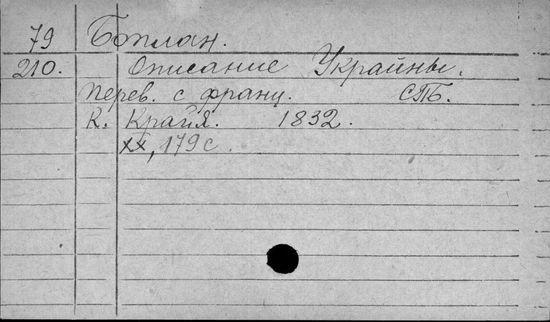 79 Боплан.
210. Описание Украйны.
перев. с франц. СПБ.
К. Крайя. 1832.
XX, 179 с.